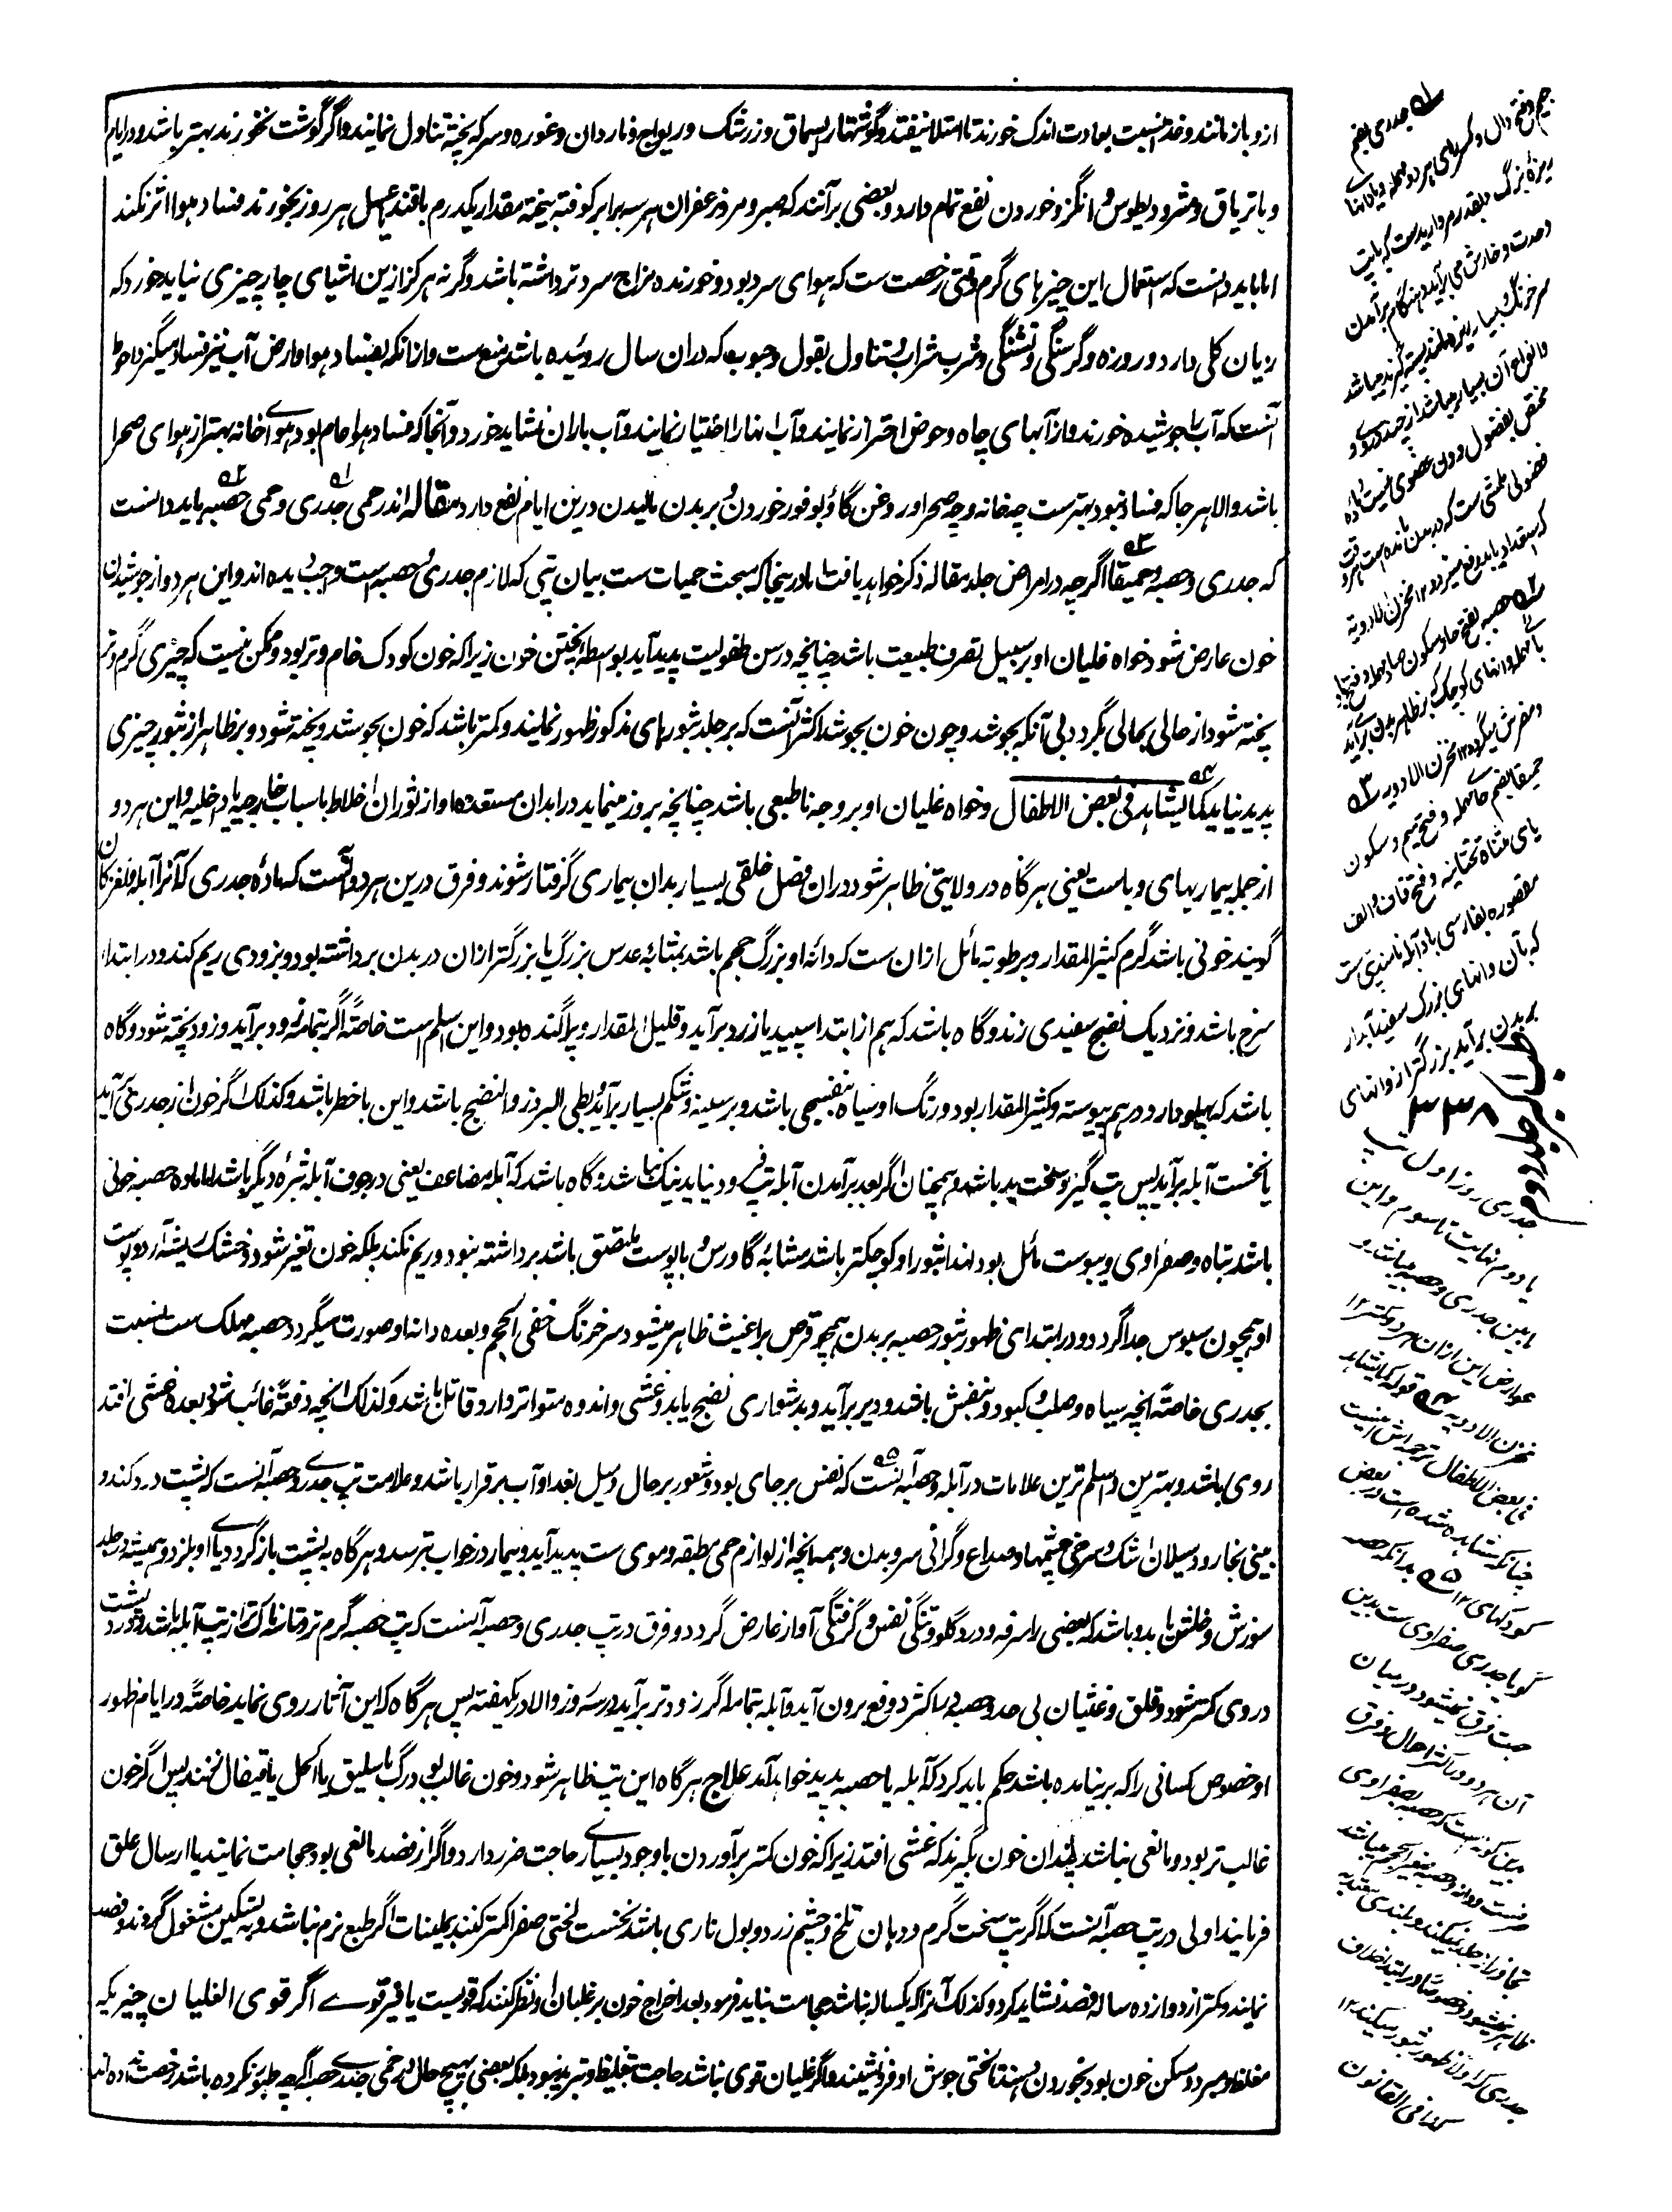 ازو باز مانند و غذا نسبت بعادت اندک خورند تا امتلا نیفتد و گوشتها بسماق و زرشک و ریواج و ناردان و غوره و سرکه پخته تناول نمایند و اگر گوشت نخورند بهتر باشد و در ایام
وبا تریاق و مثرودیطوس و انگزد خوردن نفع تمام دارد و بعضی برآنند که صبر و مر و زعفران هر سه برابر کوفته بیخته مقدار یکدرم با قند یا عسل هر روز بخورند فساد هوا اثر نکند
اما باید دانست که استعمال این چیزهای گرم وقتی رخصت ست که هوای سرد بود و خورنده مزاج سرد تر داشته باشد و گرنه هرگز ازین اشیای چار چیزی نباید خورد که
زیان کلی دارد و روزه و گرسنگی و تشنگی و شرب شراب و تناول بقول و حبوب که دران سال روئیده باشد منع ست و ازانکه بفساد هوا و ارض آب نیز فساد میگیرد احوط
آنست که آب را جوشیده خورند و از آبهای چاه و حوض احتراز نمایند و آب انهار را اختیار نمایند و آب باران نشاید خورد و آنجا که فساد هوا عام بود هوای خانه بهتر از هوای صحرا
باشد والا هر جا که فساد نبود بهترست چه خانه و چه صحرا و روغن گاؤ بوفور خوردن و بر بدن مالیدن درین ایام نفع دارد مقاله اندر حمی جدری و حمی حصبه باید دانست
که جدری و حصبه و حمیقا اگرچه در امراض جلد مقاله ذکر خواهد یافت اما درینجا که مبحث حمیات ست بیان تپی که لازم جدری و حصبه است واجب دیده اند و این هر دو از جوشیدن
خون عارض شود خواه غلیان او بر سبیل تصرف طبیعت باشد چنانچه در سن طفولیت پدید آید بواسطه پختن خون زیرا که خون کودک خام و تر بود و ممکن نیست که چیزی گرم و تر
پخته شود از حالی بحالی بگردد بی آنکه بجوشد و چون خون بجوشد اکثر آنست که بر جلد بثورهای مذکور ظهور نمایند و کمتر باشد که خون بجوشد و پخته شود و بر ظاهر از بثور چیزی
پدید نیاید کما یشاهد فی بعض الاطفال و خواه غلیان او بر وجه نا طبعی باشد چنانچه بروز مینماید در ابدان مستعده او از ثوران اخلاط باسباب خارجیه یا داخلیه و این هر دو
از جمله بیماریهای وباست یعنی هرگاه در ولایتی ظاهر شود دران فصل خلقی بسیار بدان بیماری گرفتار شوند و فرق درین هر دو آنست که ماده جدری که آنرا آبله و نغزکان
گویند خونی باشد گرم کثیر المقدار و برطوبه مائل ازان ست که دانه او بزرگ حجم باشد بمثابه عدس بزرگ یا بزرگتر ازان در بدن برداشته بود و بزودی ریم کند و در ابتداء
سرخ باشد و نزدیک نضج سفیدی زند و گاه باشد که هم از ابتدا سپید یا زرد برآید و قلیل المقدار و پراگنده بود و این اسلم است خاصةً اگر بتمامه زود برآید و زود پخته شود و گاه
باشد که پهلودار و در هم پیوسته و کثیر المقدار بود و رنگ او سیاه بنفسجی باشد و بر سینه و شکم بسیار برآید و بطی البروز و النضج باشد و این با خطر باشد و کذلک اگر خون از جدری آید
یا نخست آبله برآید پس تپ گیرد سخت بد باشد و همچنان اگر بعد برآمدن آبله تپ فرود نیاید نیک نباشد و گاه باشد که آبله مضاعف یعنی در جوف آبله بثره دیگر باشد اما ماده حصبه خونی
باشد تباه و صفراوی و بیبوست مائل بود لهذا بثور او کوچکتر باشد بمثابه گاورس و با پوست ملتصق باشد برداشته نبود و ریم نکند بلکه خون تغیر شود و خشک ریشه آرد و پوست
او همچون سبوس جدا گردد و در ابتدای ظهور بثور حصبه بر بدن همچو قرص براغیث ظاهر میشود سرخرنگ خفی الحجم و بعده دانه او صورت میگیرد و حصبه مهلک ست نسبت
بجدری خاصةً آنچه سیاه و صلب و کبود و بنفش باشد و دیر برآید و بدشواری نضج یابد و غشی و اندوه متواتر دارد قاتل باشد و کذلک آنچه دفعةً غائب شود بعده غشی افتد
ردی باشد و بهترین و اسلم ترین علامات در آبله و حصبه آنست که نفس برجای بود و شعور بر حال و میل بغذا و آب برقرار باشد و علامت تپ جدری و حصبه آنست که پشت درد کند و
بینی بخارد و سیلان اشک و سرخی چشمها و صداع و گرانی سر و بدن و همه آنچه از لوازم حمی مطبقه دموی ست پدید آید و بیمار در خواب بترسد و هرگاه به پشت بازگردد پای او بلرزد و همیشه در جلد
سوزش و خلش یابد و باشد که بعضی را سرفه و درد گلو و تنگی نفس و گرفتگی آواز عارض گردد و فرق در تپ جدری و حصبه آنست که تپ حصبه گرم تر و تاسناک تر از تپ آبله باشد و درد پشت
در وی کمتر شود و قلق و غثیان بی حد و حصبه اکثر دفع برون آید و آبله بتمامها اگر زودتر برآید در سه روز والا در یکهفته پس هرگاه که این آثار روی نماید خاصةً در ایام ظهور
او خصوص کسانی را که بر نیامده باشد حکم باید کرد که آبله یا حصبه پدید خواهد آمد علاج هرگاه این تپ ظاهر شود و خون غالب بود رگ باسلیق یا اکحل یا قیفال زنند پس اگر خون
غالب تر بود و مانعی نباشد چندان خون بگیرند که غشی افتد زیرا که خون کمتر برآوردن با وجود بسیاری حاجت ضرر دارد و اگر از فصد مانعی بود حجامت نمایند یا ارسال علق
فرمایند اولی در تپ حصبه آنست که اگر تپ سخت گرم و دهان تلخ و چشم زرد و بول ناری باشد نخست لختی صفرا کمتر کنند بملینات اگر طبع نرم نباشد و به تسکین مشغول گردند و فصد
نمایند و کمتر از دوازده ساله فصد نشاید کرد و کذلک آنرا که یکساله نباشد حجامت نباید فرمود بعد اخراج خون بر غلیان او نظر کنند که قویست یا غیر قوی اگر قوی الغلیان چیزیکه
مغلظ و مبرد و مسکن خون بود بخوردن دهند تا لختی جوش او فرو نشیند و اگر غلیان قوی نباشد حاجت بتغلیظ و تبرید نبود بلکه بعضی بهیچ حال در حمی جدری و حصبه اگرچه ظهور نکرده باشد رخصت نداده اند
جدری بضم
جیم و فتح دال و کسر رای هر دو مهمله و یا دانها
ریزه بزرگ و بقدر مروارید ست که با تپ
و حدت و خارش می برآید و هنگام برآمدن
سرخرنگ بسیار ریزه مانند پسته گزیده میباشد
و انواع آن بسیار میباشد از جدری و
مختص بفصول و دون عضوی نیست ماده
فضولی طمثی ست که در بدن مانده است هر وقت
که استعداد یابد دفع میشود ۱۲ مخزن الادویه
حصبه بفتح حا و سکون صاد مهمله و فتح با
دانهای کوچک که بر ظاهر بدن برآید
و مفرش میگردد ۱۲ مخزن الادویه
حمیقا بضم حای مهمله و فتح میم و سکون
یای مثناة تحتانیه و فتح قاف و الف
مقصوره بفارسی باد آبله نامند تپی ست
که بآن دانهای بزرگ سفید آبدار
بر بدن برآید بزرگتر از دانهای
جدری روز اول تپ
یا دوم نهایت تا سوم و این
ما بین جدری و حصبه میباشد و
عوارض این ازان هر دو کمتر ۱۲
مخزن الادویه قوله کما یشاهد
فی بعض الاطفال ترجمه اش اینست
چنانکه مشاهده شده است در بعض
کودکهای ۱۲ بدانکه حصبه
گویا جدری صفراوی ست بدین
جهت فرق نمیشود در میان
آن هر دو در اکثر احوال و فرق
همین گونه است که حصبه صفراوی
ست و دانه حصبه صغیر الحجم میباشد
تجاوز از جلد نمیکند و بلندی معتد به
ظاهر نمیشود خصوصا در ابتدا بخلاف
جدری که اولا ظهور بثور میکند ۱۲
کذا فی القانون